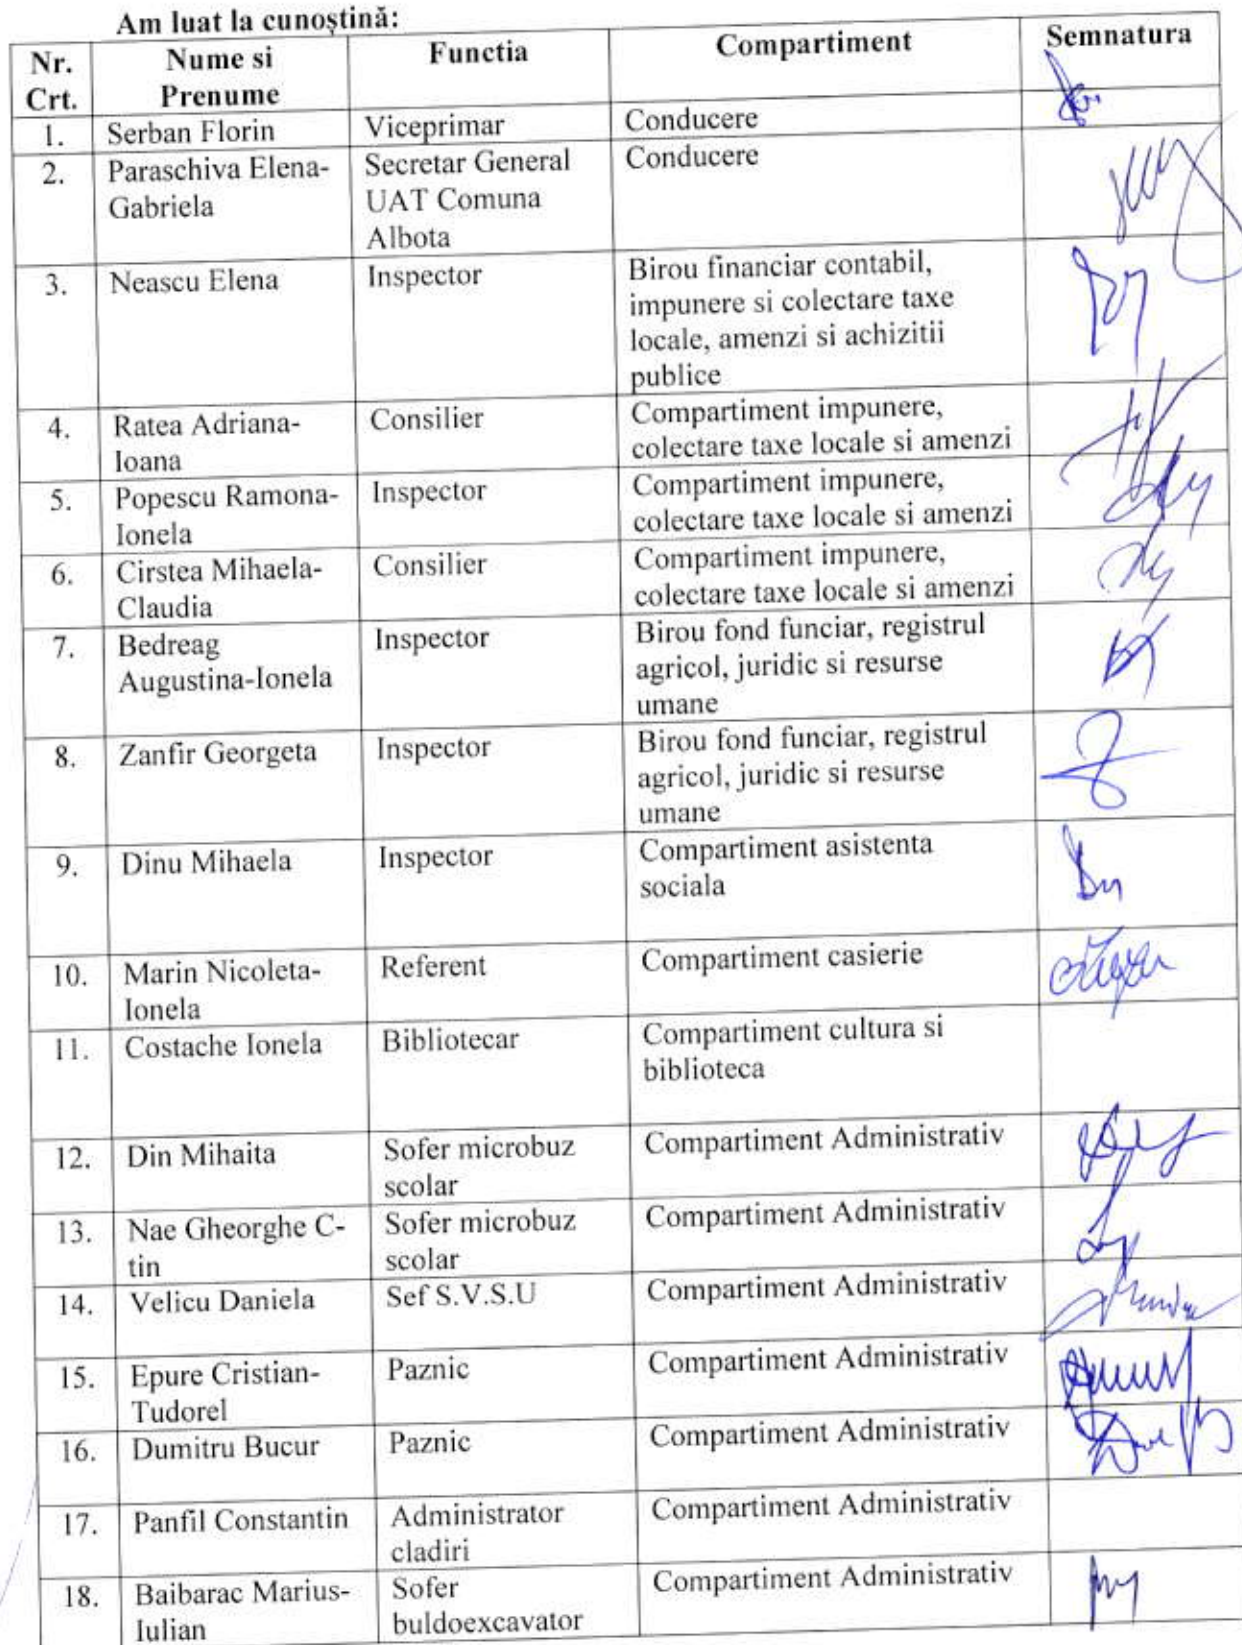 Am luat la cunoștină:
Nr. Crt. Nume si Prenume Functia Compartiment Semnatura
1. Serban Florin Viceprimar Conducere
2. Paraschiva Elena- Secretar General Conducere
Gabriela UAT Comuna
Albota
3. Neascu Elena Inspector Birou financiar contabil,
impunere si colectare taxe
locale, amenzi si achizitii
publice
4. Ratea Adriana- Consilier Compartiment impunere,
Ioana colectare taxe locale si amenzi
5. Popescu Ramona- Inspector Compartiment impunere,
Ionela colectare taxe locale si amenzi
6. Cirstea Mihaela- Consilier Compartiment impunere,
Claudia colectare taxe locale si amenzi
7. Bedreag Inspector Birou fond funciar, registrul
Augustina-Ionela agricol, juridic si resurse
umane
8. Zanfir Georgeta Inspector Birou fond funciar, registrul
agricol, juridic si resurse
umane
9. Dinu Mihaela Inspector Compartiment asistenta
sociala
10. Marin Nicoleta- Referent Compartiment casierie
Ionela
11. Costache Ionela Bibliotecar Compartiment cultura si
biblioteca
12. Din Mihaita Sofer microbuz Compartiment Administrativ
scolar
13. Nae Gheorghe C- Sofer microbuz Compartiment Administrativ
tin scolar
14. Velicu Daniela Sef S.V.S.U Compartiment Administrativ
15. Epure Cristian- Paznic Compartiment Administrativ
Tudorel
16. Dumitru Bucur Paznic Compartiment Administrativ
17. Panfil Constantin Administrator Compartiment Administrativ
cladiri
18. Baibarac Marius- Sofer Compartiment Administrativ
Iulian buldoexcavator